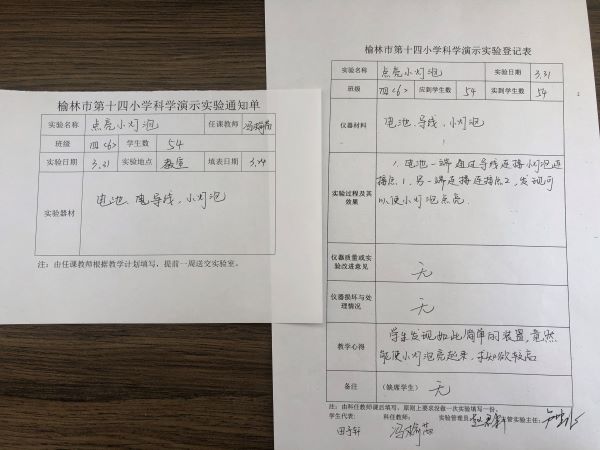 榆林市第十四小学科学演示实验通知单
实验名称 点亮小灯泡 任课教师 冯瑜芳
班级 四〈6〉 学生数 54
实验日期 3.31 实验地点 教室 填表日期 3.24
实验器材 电池、电导线、小灯泡
注：由任课教师根据教学计划填写，提前一周送交实验室。
榆林市第十四小学科学演示实验登记表
实验名称 点亮小灯泡 实验日期 3.31
班级 四〈6〉 应到学生数 54 实到学生数 54
仪器材料 电池、导线、小灯泡
1. 电池一端通过导线连接小灯泡连
实验过程及其效果 接点1，另一端连接连接点2，发现可
以使小灯泡点亮.
仪器质量或实验改进意见 无
仪器损坏与处理情况 无
学生发现如此简单的装置，竟然
教学心得 能使小灯泡亮起来，求知欲较高
备注 (缺席学生) 无
注：由科任教师课后填写，原则上要求没做一次实验填写一份。
学生代表： 科任教师： 实验管理员： 主管实验主任：
田子轩 冯瑜芳